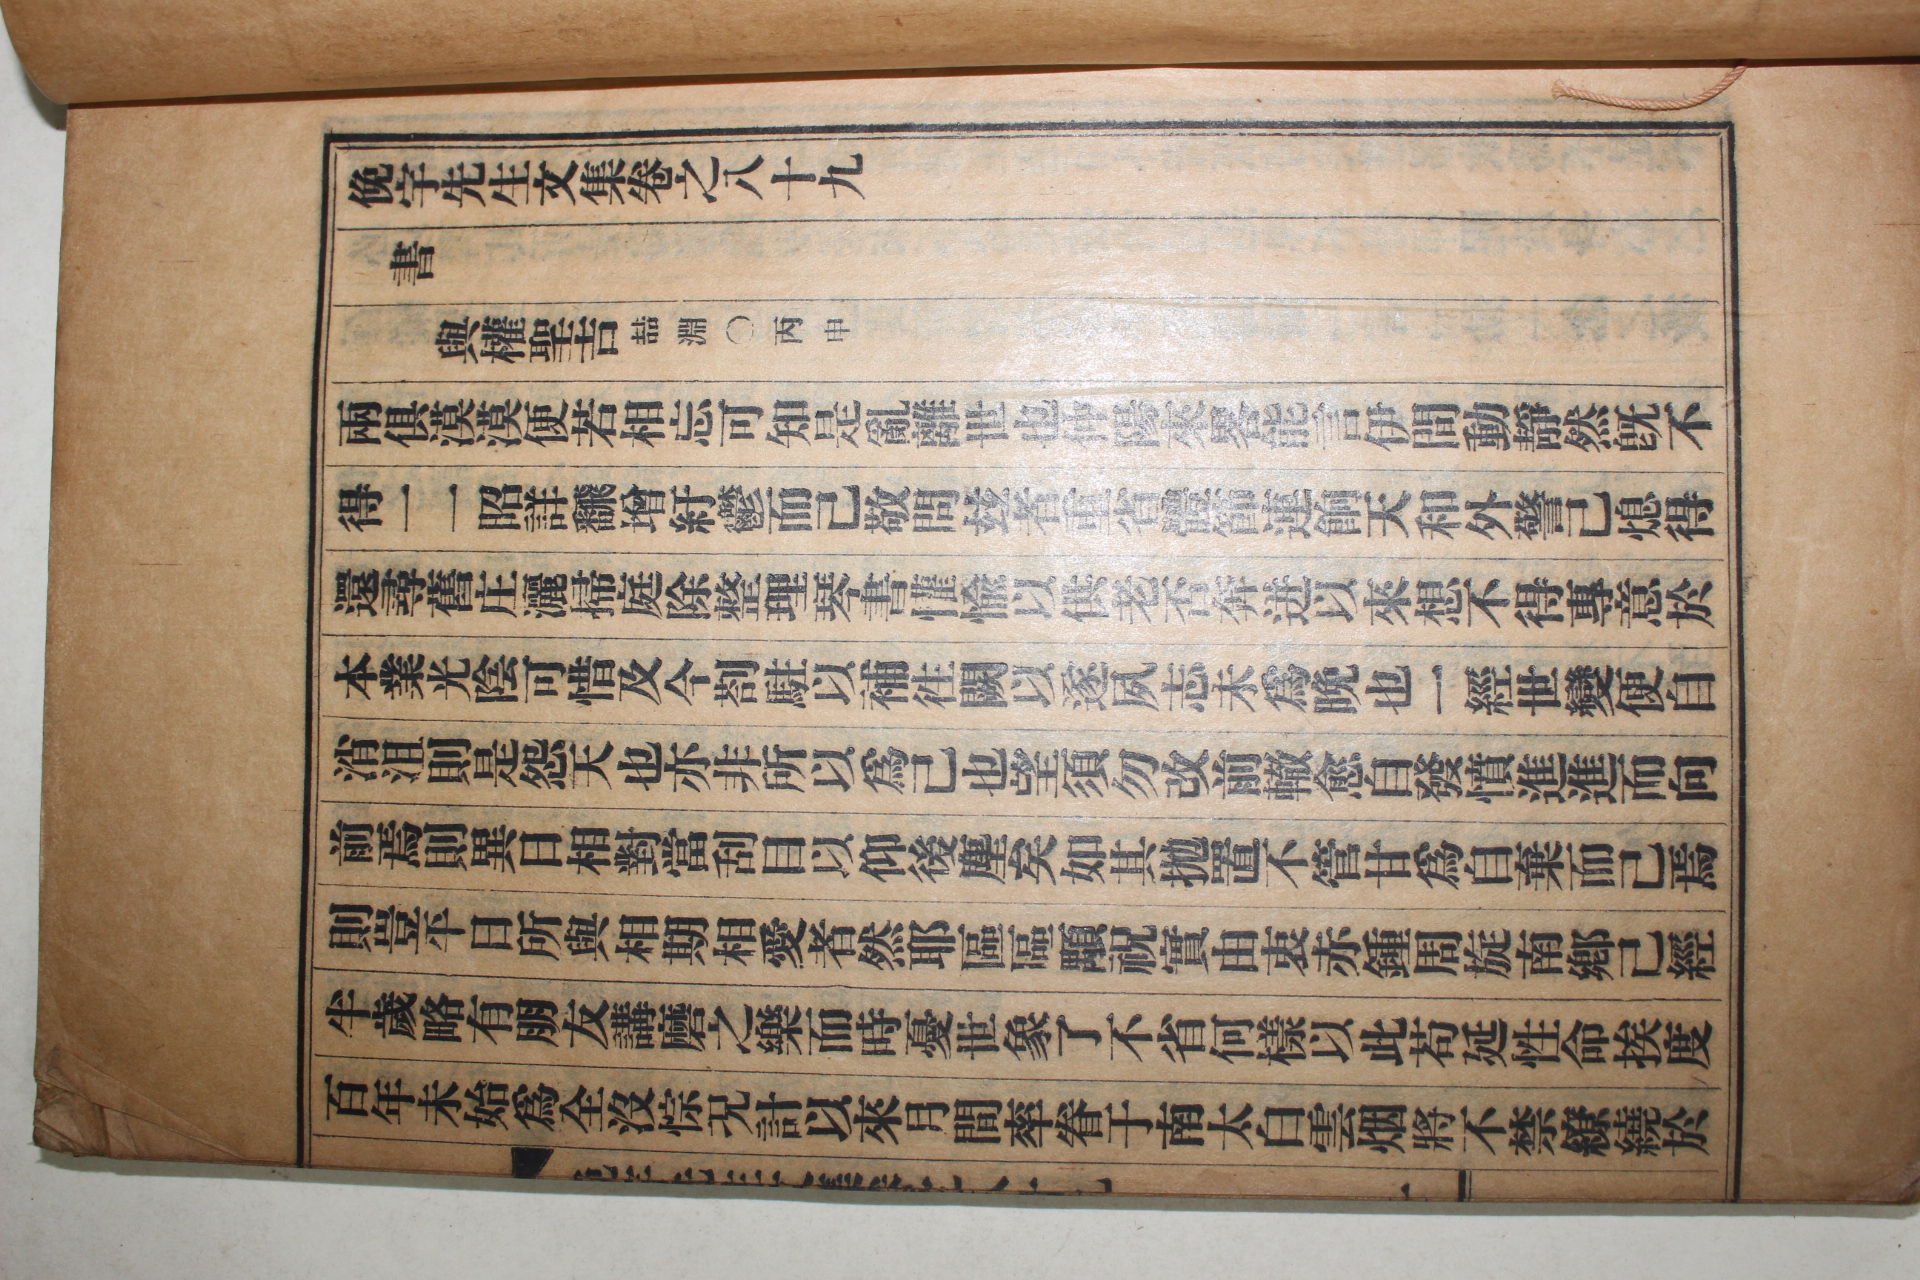 俛宇先生文集卷之八十九
書
與權聖吉喆淵○丙申
兩俱漠漠便若相忘可知是亂離世也仲陽來畧能言伊間動靜然旣不
得一一昭詳飜增紆鬱而已敬問玆者重省體節連餉天和外警已熄得
還尋舊庄灑掃庭除整理琴書懽愉以供老否奔迸以來想不得專意於
本業光陰可惜及今劄駐以補徃闕以遂夙志未爲晩也一經世變便自
消沮則是怨天也亦非所以爲己也望須勿改前轍愈自發憤進進而向
前焉則異日相對當刮目以仰後塵矣如其抛置不管甘爲自棄而已焉
則豈平日所與相期相愛者然耶區區顒祝實由衷赤鍾周旋南鄕已經
半歲略有朋友講磨之樂而時憂世象了不省何樣以此苟延性命挨度
百年未始爲全沒悰况計以來月間率眷于南太白雲烟將不禁繚繞於